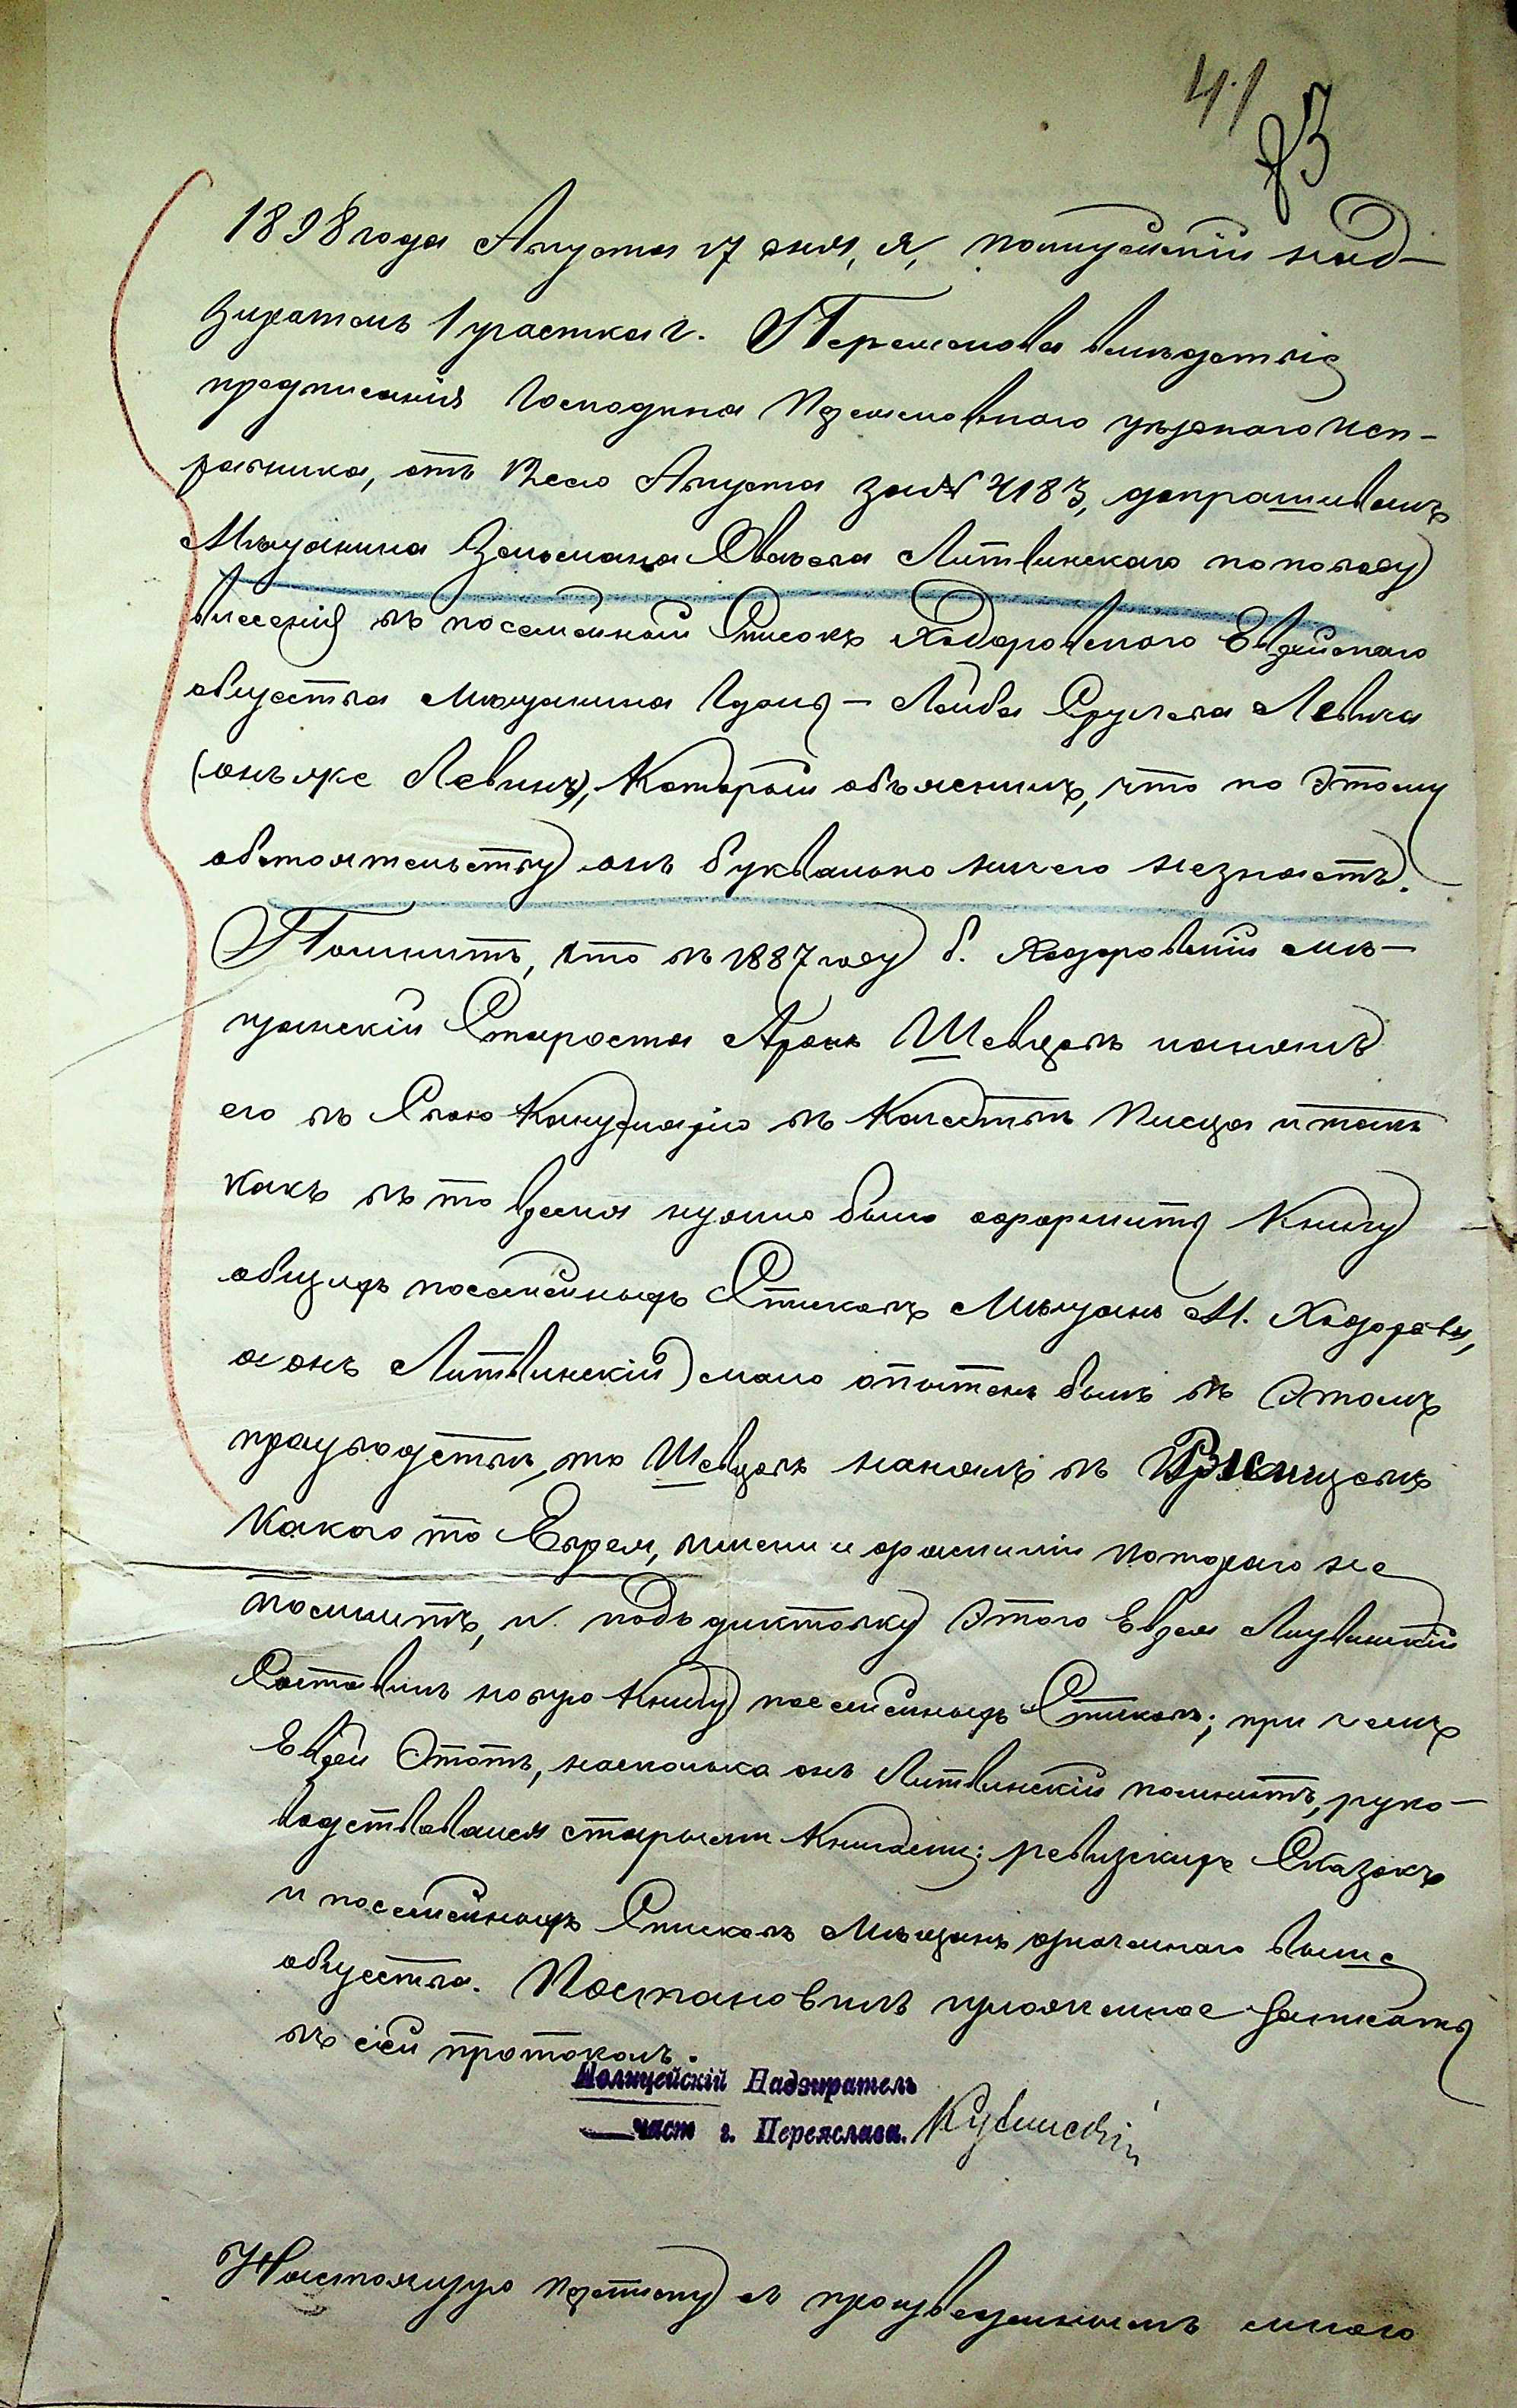 41
83
1898 года Августа 17 дня, я, полицейскій над-
зиратель 1 участка г. Переяслава вслѣдствіе
предписанія Господина Переяславского уѣзднаго Исп-
равника, отъ 12сего Августа за № 4183, допрашивалъ
Мѣщанина Зельмана Литвинскаго по поводу
внесенія въ посемейный Списокъ Ходоровского Еврейскаго
общества мѣщанина Лейба Срулева Левина
(онъ же Левинъ), который объяснилъ, что по этому
обстоятельству онъ буквально ничего незнаетъ.
Помнитъ, что въ 1887 году б. Ходоровскій мѣ-
щанскій Староста Аронъ Шевцовъ нанялъ
его въ свою Канцелярію въ качествѣ писца и такъ
какъ въ то время нужно было оформить Книгу
общихъ посемейныхъ Списковъ Мѣщанъ М. Ходорова,
а онъ Литвинскій мало опытенъ былъ въ этомъ
производствѣ, то Шевцовъ нанялъ въ Ржищевѣ
какого то Еврея, имени и фамиліи котораго не
помнитъ, и подъ диктовку этого Еврея Литвинскій
составилъ новую Книгу посемейныхъ Списковъ; при чемъ
Еврей этотъ, насколько онъ Литвинскій помнитъ, руко-
водствовался старыми Книгами: ревизскихъ Сказокъ
и посемейныхъ Списковъ мѣщанъ означеннаго выше
общества. Постановилъ изложенное записать
въ сей протоколъ.
Полицейскій Надзиратель
част г. Переяслава.
Настоящую переписку съ произведеннымъ мною